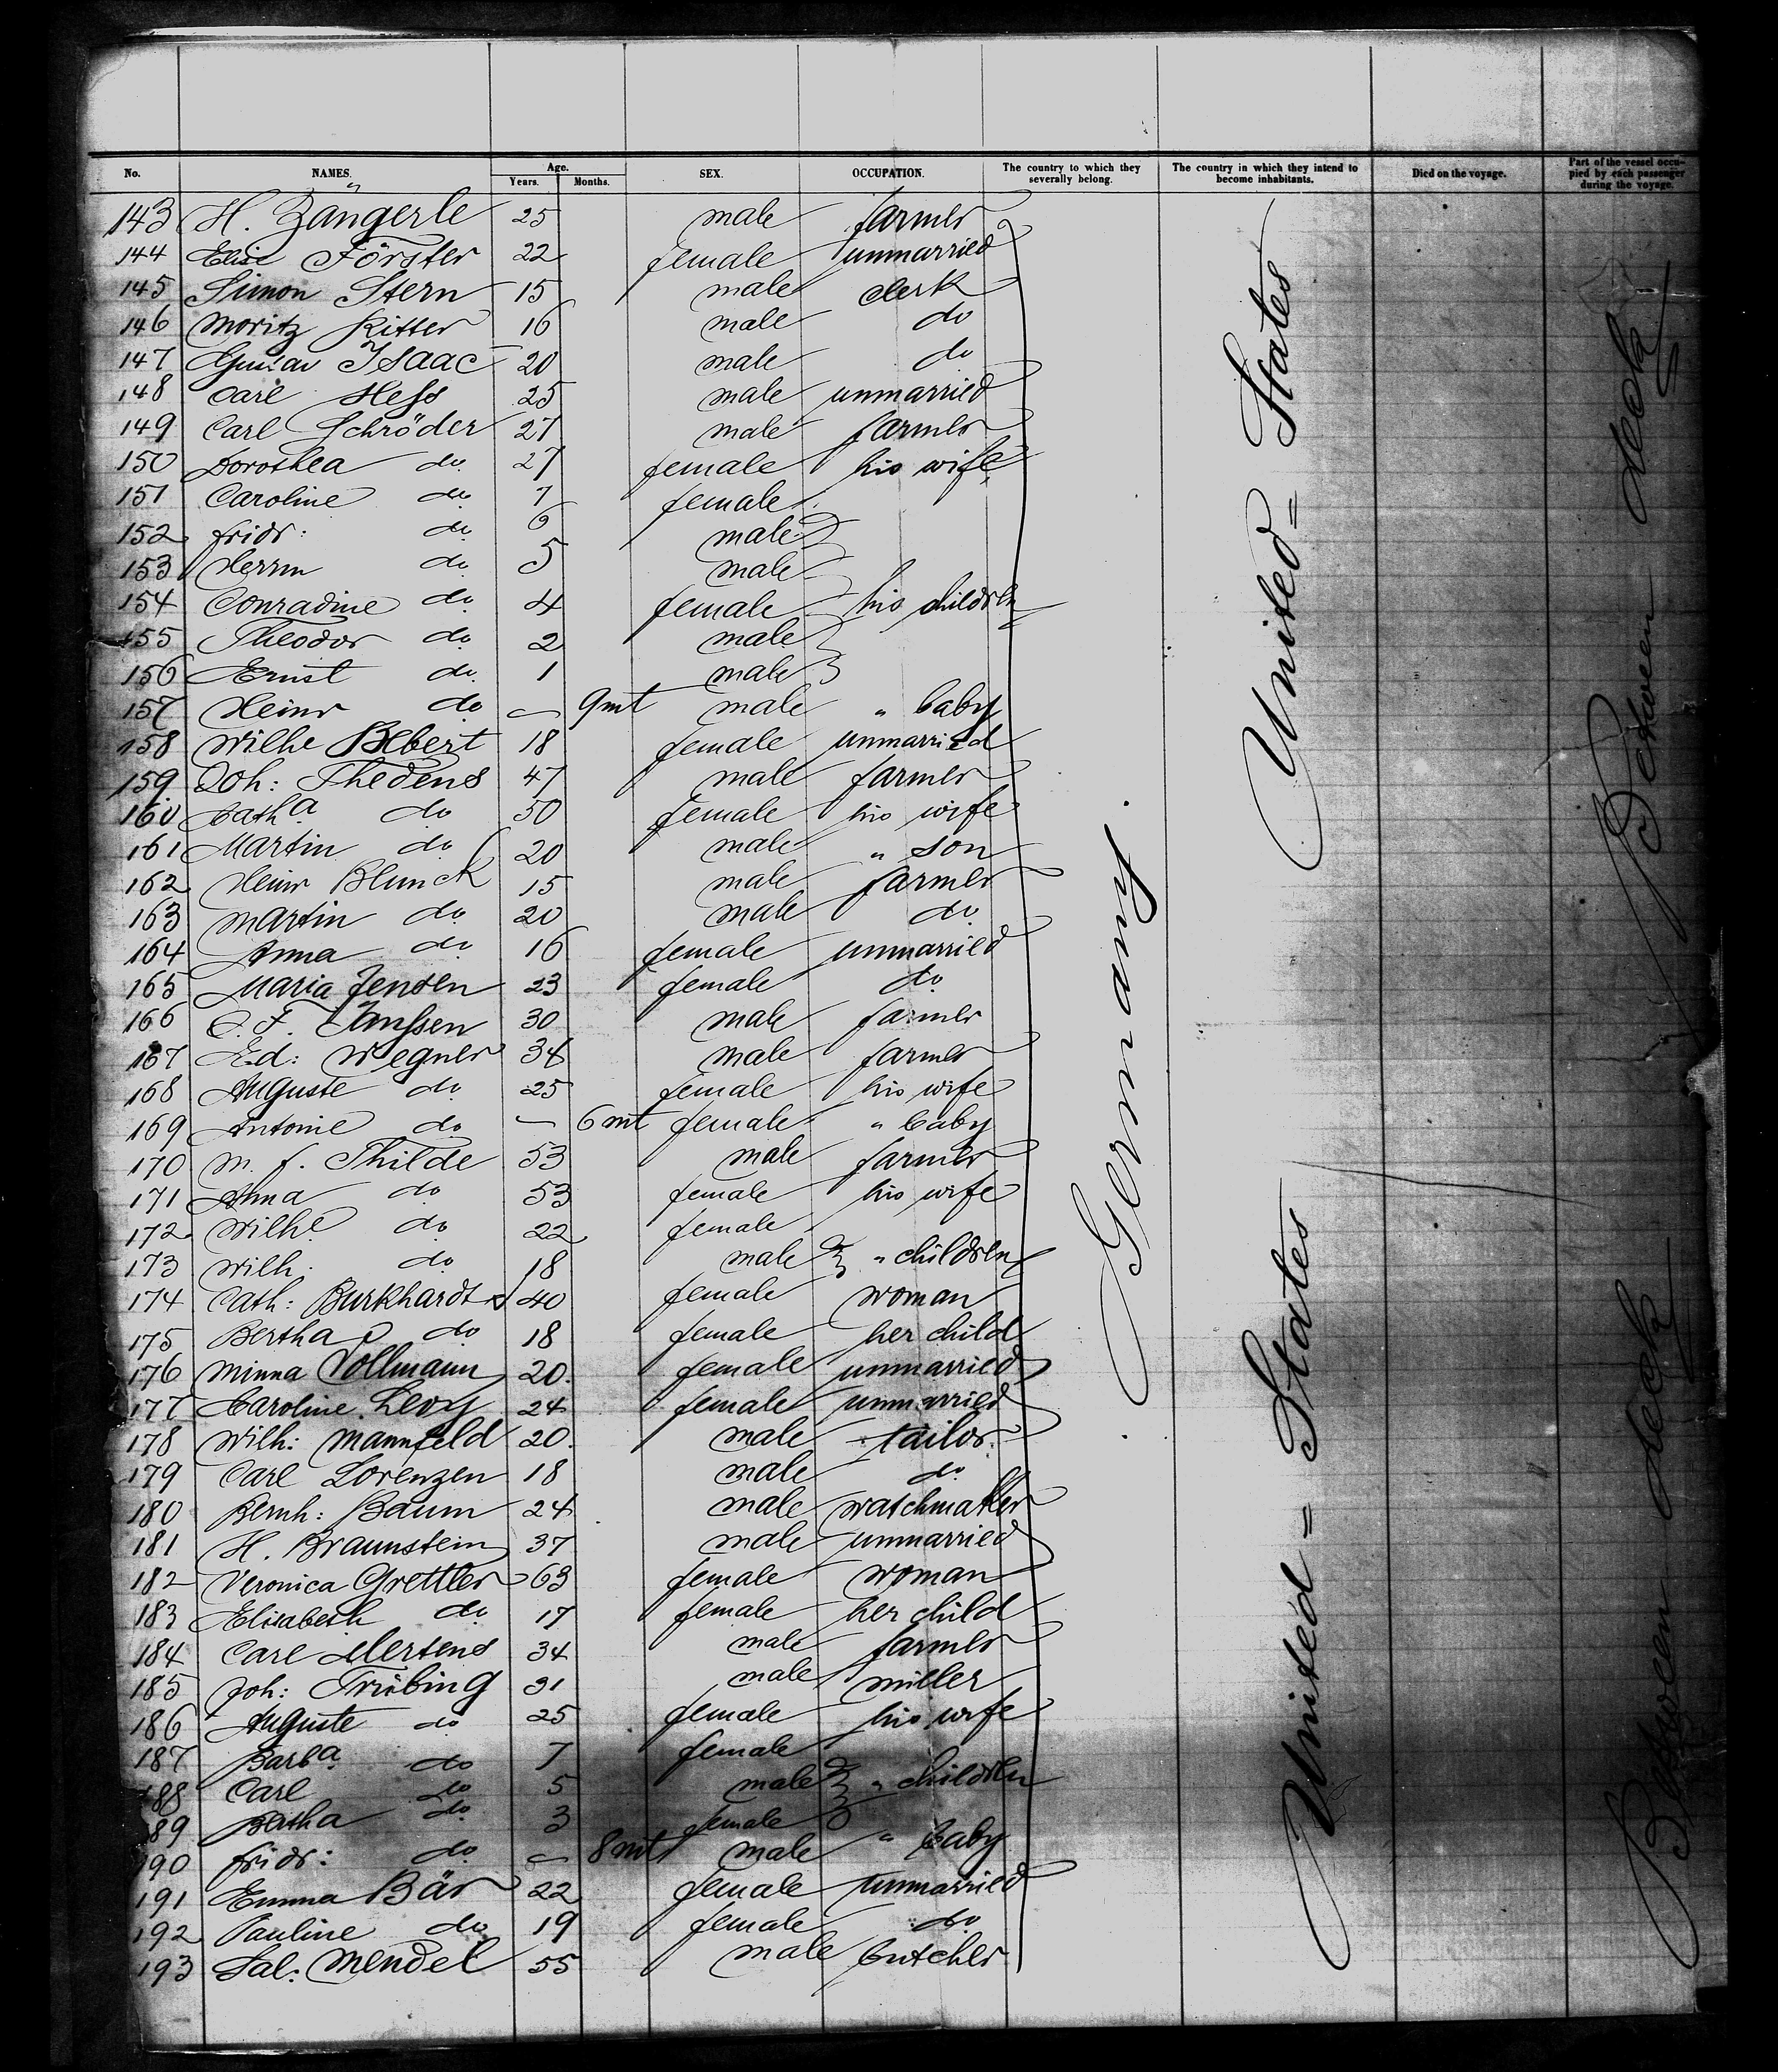 No. NAMES. Age. Years. Months. SEX. OCCUPATION. The country to which they severally belong. The country in which they intend to become inhabitants. Died on the voyage. Part of the vessel occupied by each passenger during the voyage.
143 H. Zängerle 25 male farmer
144 Elise Förster 22 female unmarried
145 Simon Stern 15 male clerk
146 Moritz Ritter 16 male do
147 Gustav Isaac 20 male do
148 Carl Hess 25 male unmarried
149 Carl Schröder 27 male farmer
150 Dorothea do 27 female his wife
151 Caroline do 7 female
152 fridr: do 6 male
153 Herrm do 5 male
154 Conradine do 4 female his children
155 Theodor do 2 male
156 Ernst do 1 male
157 Heinr do — 9 mt male " baby
158 Wilhe 18 female unmarried
159 Joh: Thedens 47 male farmer
160 Catha do 50 female his wife
161 Martin do 20 male " son
162 Heinr Blunck 15 male farmer
163 Martin do 20 male do
164 Anna do 16 female unmarried
165 Maria Jensen 23 female do
166 C. F. Janssen 30 male farmer
167 Ed: Wegner 34 male farmer
168 Auguste do 25 female his wife
169 Antonie do — 6 mt female " baby
170 M. f. Thilde 53 male farmer
171 Anna do 53 female his wife
172 Wilhe do 22 female
173 Wilh. do 18 male " children
174 Cath: Burkhardt 40 female woman
175 Bertha do 18 female her child
176 Minna Vollmann 20. female unmarried
177 Caroline Levy 24 female unmarried
178 Wilh: Mannfeld 20. male tailor
179 Carl Lorenzen 18 male do
180 Bernh: Baum 24 male watchmaker
181 H. Braunstein 37 male unmarried
182 Veronica Grettler 63 female woman
183 Elisabeth do 17 female her child
184 Carl Mertens 34 male farmer
185 Joh: Trübing 31 male miller
186 Auguste do 25 female his wife
187 Barba do 7 female
188 Carl do 5 male " children
189 Bertha do 3 female
190 fridr: do — 8 mt male " baby
191 Emma Bär 22 female unmarried
192 Pauline do 19 female do
193 Sal: Mendel 55 male butcher
Germany.
United = States
United = States
Between deck
Between deck